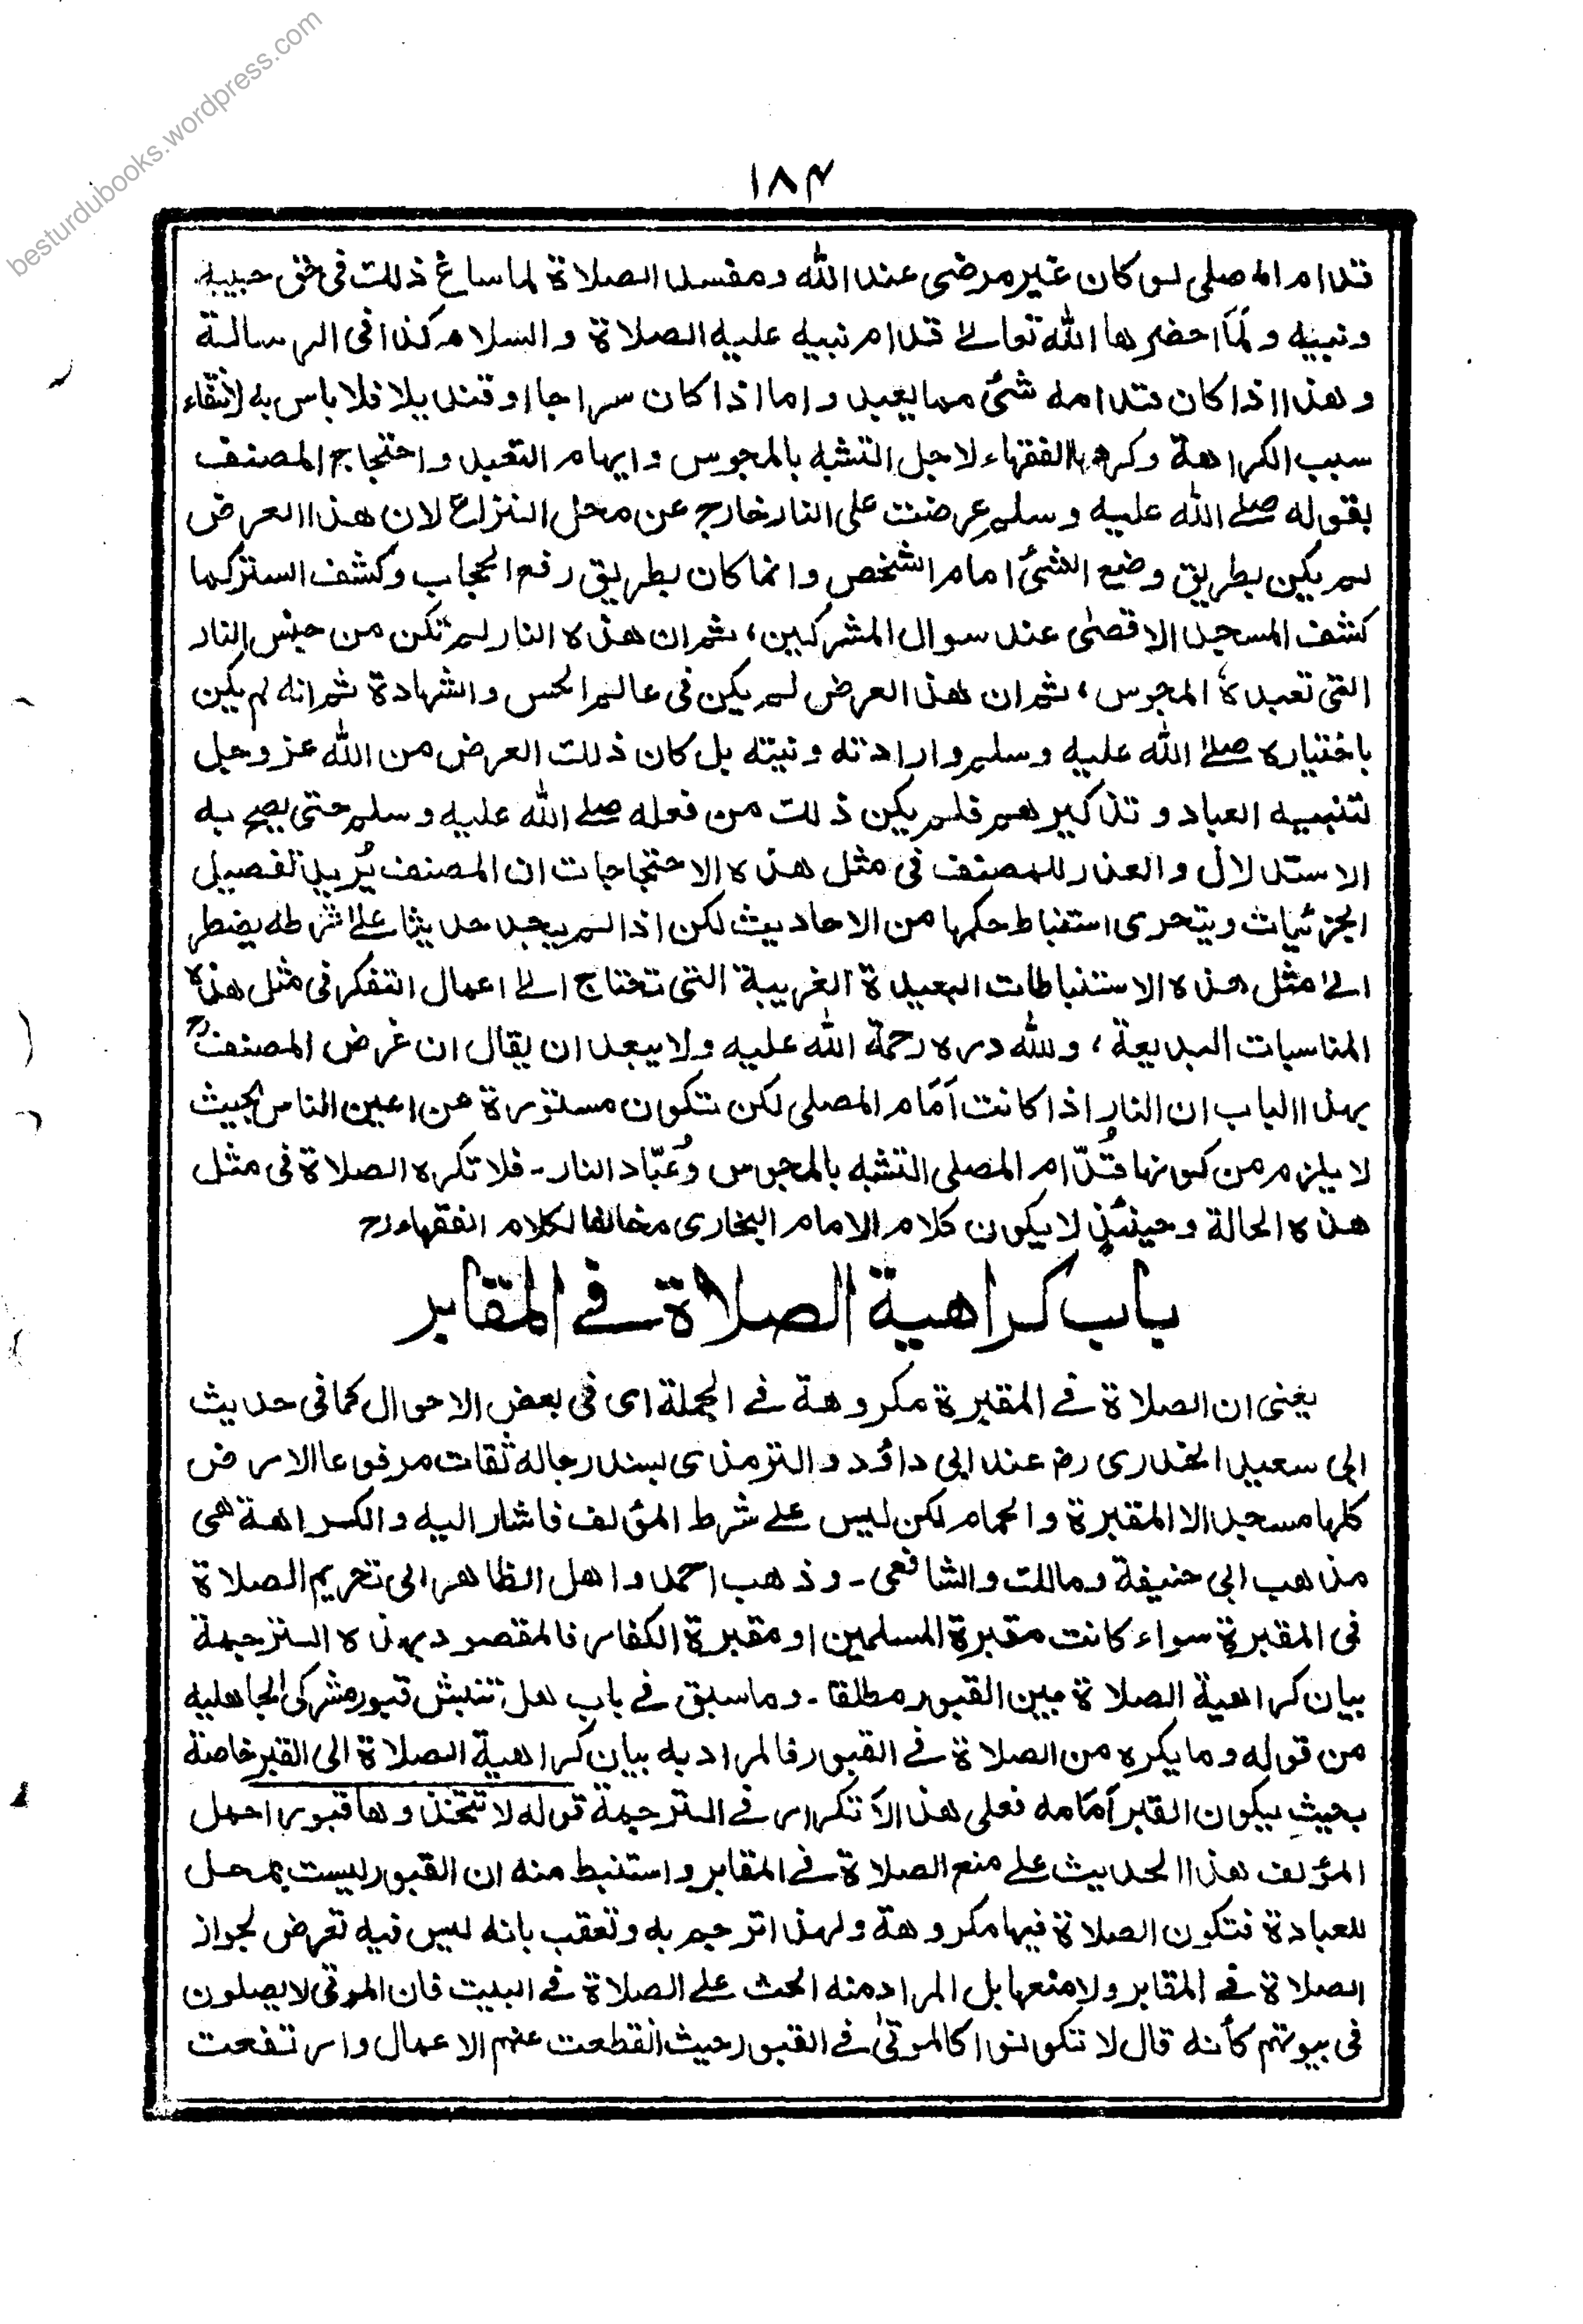 besturdubooks.wordpress.com
۱۸۴
قدام المصلى لو كان غير مرضى عند الله ومفسد الصلاة لما ساغ ذلك فى حق حبيبه
ونبيه ولمَّا احضرها الله تعالے قدام نبيه عليه الصلاة والسلام كذا فى الرسالة
وهذا اذا كان قدامه شئ مما يعبد واما اذا كان سراجا او قنديلا فلا باس به لانتفاء
سبب الكراهة وكرهها الفقهاء لاجل التشبه بالمجوس وايهام التعبد واحتجاج المصنف
بقوله صلے الله عليه وسلم عرضت على النار خارج عن محل النزاع لان هذا العرض
لم يكن بطريق وضع الشئ امام الشخص وانما كان بطريق رفع الحجاب وكشف الستر كما
كشف المسجد الاقصىٰ عند سوال المشركين، ثم ان هذه النار لم تكن من جنس النار
التى تعبده المجوس، ثم ان هذا العرض لم يكن فى عالم الحس والشهادة ثم انه لم يكن
باختياره صلے الله عليه وسلم وارادته ونيته بل كان ذلك العرض من الله عز وجل
لتنبيه العباد وتذكيرهم فلم يكن ذلك من فعله صلے الله عليه وسلم حتى يصح به
الاستدلال والعذر للمصنف فى مثل هذه الاحتجاجات ان المصنف يُريد تفصيل
الجزئيات ويتحرى استنباط حكمها من الاحاديث لكن اذا لم يجد حديثا علے شرطه يضطر
الے مثل هذه الاستنباطات البعيدة الغريبة التى تحتاج الے اعمال التفكر فى مثل هذه
المناسبات البديعة، ولله دره رحمة الله عليه ولا يبعد ان يقال ان غرض المصنفؒ
بهذا الباب ان النار اذا كانت اَمَام المصلى لكن تكون مستورة عن اعين الناس بحيث
لا يلزم من كونها قُدّام المصلى التشبه بالمجوس وعُبّاد النار۔ فلا تكره الصلاة فى مثل
هذه الحالة وحينئذٍ لا يكون كلام الامام البخارى مخالفا لكلام الفقهاءرح
باب كراهية الصلاة فے المقابر
يعنى ان الصلاة فے المقبرة مكروهة فے الجملة اى فى بعض الاحوال كما فى حديث
ابى سعيد الخدرى رض عند ابى داؤد والترمذى بسند رجاله ثقات مرفوعا الارض
كلها مسجد الا المقبرة والحمام لكن ليس علے شرط المؤلف فاشار اليه والكراهة هى
مذهب ابى حنيفة ومالك والشافعى۔ وذهب احمد واهل الظاهر الى تحريم الصلاة
فى المقبرة سواء كانت مقبرة المسلمين او مقبرة الكفار فالمقصود بهذه الترجمة
بيان كراهية الصلاة بين القبور مطلقا۔ وما سبق فے باب هل تنبش قبور مشركى الجاهليه
من قوله وما يكره من الصلاة فے القبور فالمراد به بيان كراهية الصلاة الى القبر خاصة
بحيث يكون القبر اَمَامه فعلى هذا لا تكرار فے الترجمة قوله لا تتخذوها قبورا حمل
المؤلف هذا الحديث علے منع الصلاة فے المقابر واستنبط منه ان القبور ليست بمحل
للعبادة فتكون الصلاة فيها مكروهة ولهذا ترجم به وتعقب بانه ليس فيه تعرض لجواز
الصلاة فے المقابر ولا منعها بل المراد منه الحث علے الصلاة فے البيت فان الموتى لا يصلون
فى بيوتهم كأنه قال لا تكونوا كالموتىٰ فے القبور حيث انقطعت عنهم الاعمال وارتفعت